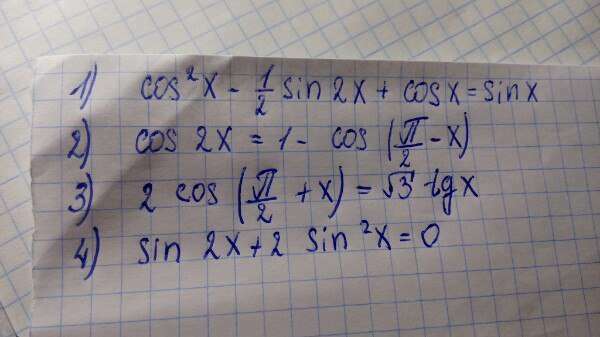 1) cos²x - 1/2 sin 2x + cos x = sin x
2) cos 2x = 1 - cos (π/2 - x)
3) 2 cos (π/2 + x) = √3 tg x
4) sin 2x + 2 sin²x = 0